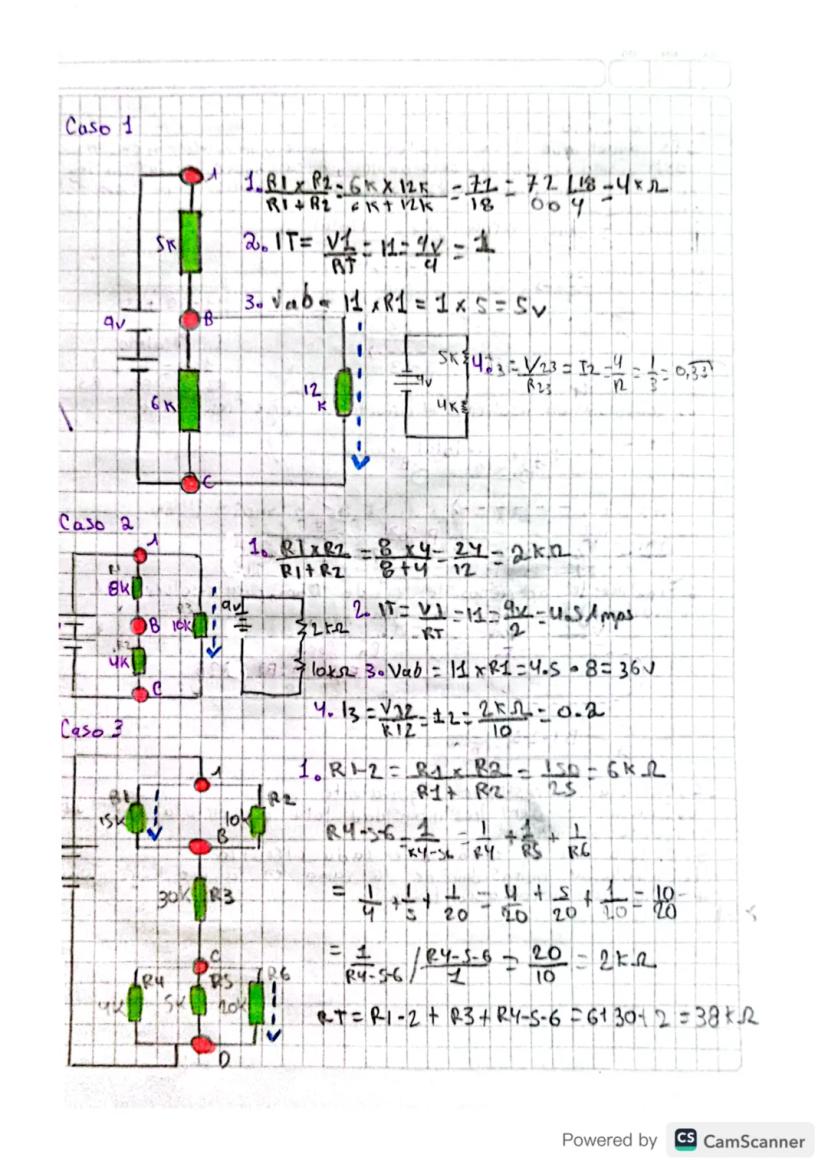 Caso 1
A
5K
9V
B
6K
12
K
C
1. R1 x R2 / R1 + R2 = 6K x 12K / 6K + 12K = 72 / 18 = 72 | 18 = 4KΩ
00 4
2. IT = V1 / RT = I1 = 4V / 4 = 1
3. Vab = I1 x R1 = 1 x 5 = 5v
9v
5K
4K
V23 / R23 = I2 = 4 / 12 = 1 / 3 = 0,33
Caso 2
A
8K
B
10K
4K
C
1. R1xR2 / R1+R2 = 8 x 4 / 8+4 = 24 / 12 = 2KΩ
9v
2KΩ
10KΩ
2. IT = V1 / RT = I1 = 9v / 2 = 4.5 Amps
3. Vab = I1 x R1 = 4.5 • 8 = 36v
4. I3 = = I2 = 2KΩ / 10 = 0.2
Caso 3
A
R1
15K
R2
10K
B
30K R3
C
R4
4K
R5
5K
R6
20K
D
1. R1-2 = R1 x R2 / R1 + R2 = 150 / 25 = 6KΩ
R4-5-6 = 1 / R4-56 = 1 / R4 + 1 / R5 + 1 / R6
= 1 / 4 + 1 / 5 + 1 / 20 = 4 / 20 + 5 / 20 + 1 / 20 = 10 / 20
= 1 / R4-5-6 / R4-5-6 / 1 = 20 / 10 = 2KΩ
RT = R1-2 + R3 + R4-5-6 = 6+30+2 = 38KΩ
Powered by CS CamScanner